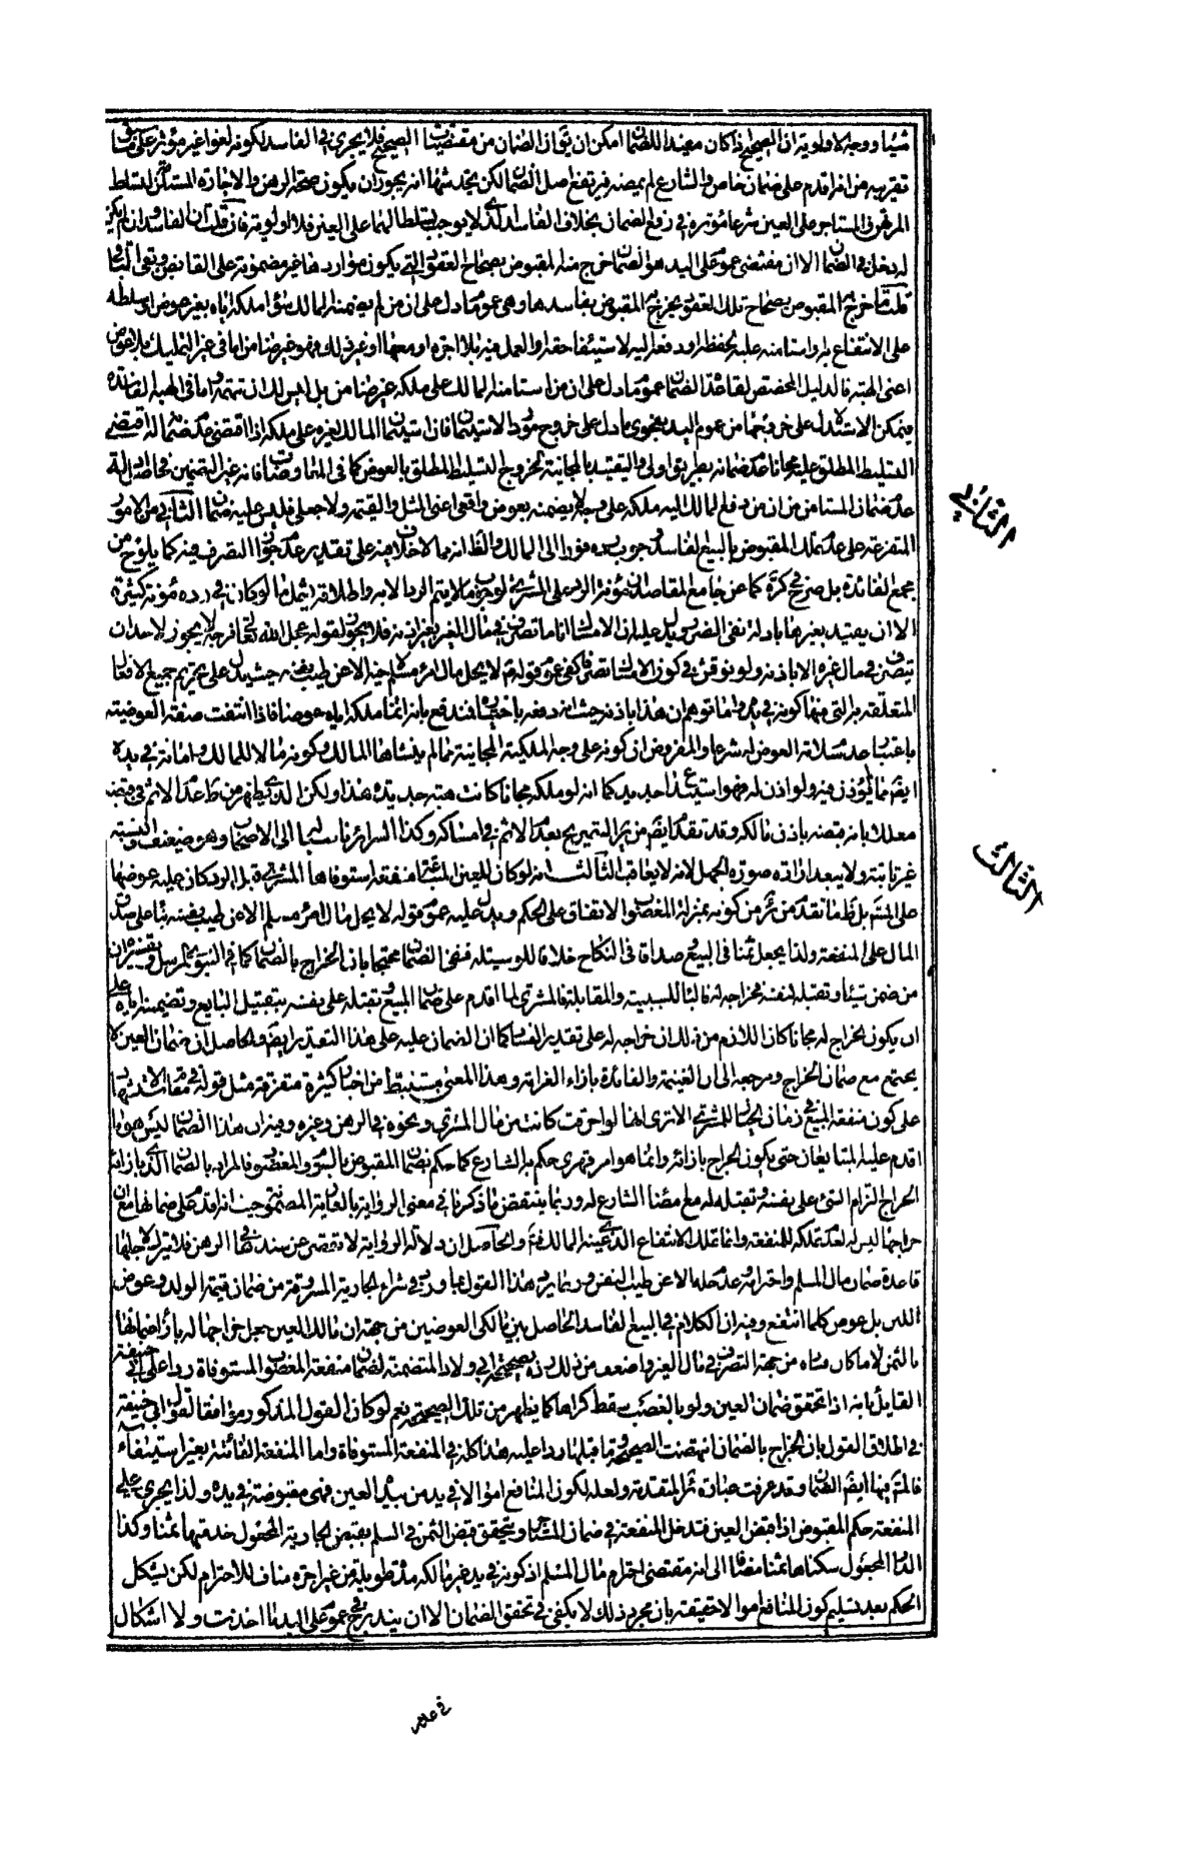 شيئا ووجه الاولوية ان الصحيح اذا كان مفيدا للضمان امكن ان يقال ان الضمان من مقتضيات الصحيح فلا يجري في الفاسد لكونه لغوا غير مؤثر على ما سبق
تقريبه من انه اقدم على ضمان خاص والشارع لم يمضه فيرتفع اصل الضمان لكن يخدشها انه يجوز ان يكون صحة الرهن والاجارة المستلزمة لتسلط
المرتهن والمستاجر على العين شرعا مؤثرة في رفع الضمان بخلاف الفاسد الذي لا يوجب تسلطا لهما على العين فلا اولوية فان قلت ان الفاسد وان لم يكن
له دخل في الضمان الا ان مقتضى عموم على اليد هو الضمان خرج منه المقبوض بصحاح العقود التي يكون مواردها غير مضمونة على القابض وبقي الباقي
قلت ما خرج به المقبوض بصحاح تلك العقود يخرج به المقبوض بفاسدها وهي عموم ما دل على ان من لم يضمنه المالك سواء ملكه اياه بغير عوض او سلطه
على الانتفاع به او استامنه عليه لحفظه او دفعه اليه لاستيفاء حقه او العمل فيه بلا اجرة او معها او غير ذلك فهو غير ضامن اما في غير التمليك بلا عوض
اعني الهبة فالدليل المخصص لقاعدة الضمان عموم ما دل على ان من استامنه المالك على ملكه غير ضامن بل ليس لك ان تتهمه واما في الهبة الفاسدة
فيمكن الاستدلال على خروجها من عموم اليد بفحوى ما دل على خروج مورد الاستيمان فان استيمان المالك لغيره على ملكه اذا اقتضى عدم ضمانه له اقتضى
التسليط المطلق عليه مجانا عدم ضمانه بطريق اولى والتقييد بالمجانية لخروج التسليط المطلق بالعوض كما في المعاوضات فانه عين التضمين فحاصل ادلة
عدم ضمان المستامن ان من دفع المالك اليه ملكه على وجه لا يضمنه بعوض واقعي اعني المثل والقيمة ولا جعلي فليس عليه ضمان الثاني من الامور
المتفرعة على عدم تملك المقبوض بالبيع الفاسد وجوب رده فورا الى المالك والظ انه مما لا خلاف فيه على تقدير عدم جواز التصرف فيه كما يلوح من
مجمع الفائدة بل صرح في كرة كما عن جامع المقاصد ان مؤنة الرد على المشتري لوجوب ما لا يتم الرد الا به واطلاقه يشمل ما لو كان في رده مؤنة كثيرة
الا ان يقيد بغيرها بادلة نفي الضرر ويدل عليه ان الامساك اناما تصرف في مال الغير بغير اذنه فلا يجوز لقوله عجل الله تعالى فرجه لا يجوز لاحد ان
يتصرف في مال غيره الا باذنه ولو نوقش في كون الامساك تصرفا كفى عموم قوله م لا يحل مال امرء مسلم لاخيه الا عن طيب نفسه حيث يدل على تحريم جميع الافعال
المتعلقة به التي منها كونه في يده واما توهم ان هذا باذنه حيث انه دفعه باختياره فمندفع بانه انما ملكه اياه عوضا فاذا انتفت صفة العوضية
باعتبار عدم سلامة العوض له شرعا والمفروض ان كونه على وجه الملكية المجانية مما لم ينشاها المالك وكونه مالا للمالك وامانة في يده
ايضا مما لم يؤذن فيه ولو اذن له فهو استيداع جديد كما انه لو ملكه مجانا كانت هبة جديدة هذا ولكن الذي يظهر من ط عدم الاثم في قبضه
معللا بانه قبضه باذن مالكه وقد تقدم ايضا من ئر التصريح بعدم الاثم في امساكه وكذا السرائر ناسبا الى الاصحاب وهو ضعيف والنسبة
غير ثابتة ولا يبعد ارادة صورة الجهل لانه لا يعاقب الثالث انه لو كان للعين المبتاعة منفعة استوفاها المشتري قبل الرد كان عليه عوضها
على المشهور بل ظ ما تقدم من ئر من كونه بمنزلة المغصوب الاتفاق على الحكم ويدل عليه عموم قوله لا يحل مال امرء مسلم الا عن طيب نفسه بناء على صدق
المال على المنفعة ولذا يجعل ثمنا في البيع وصداقا في النكاح خلافا للوسيلة فنفى الضمان محتجا بان الخراج بالضمان كما في النبوي المرسل وتفسيره ان
من ضمن شيئا وتقبله لنفسه فخراجه له فالباء للسببية والمقابلة فالمشتري لما اقدم على ضمان المبيع وتقبله على نفسه بتقبيل البايع وتضمينه اياه على
ان يكون الخراج له مجانا كان اللازم من ذلك ان خراجه له على تقدير الفساد كما ان الضمان عليه على هذا التقدير ايضا والحاصل ان ضمان العين لا
يجتمع مع ضمان الخراج ومرجعه الى ان الغنيمة والفائدة بازاء الغرامة وهذا المعنى مستنبط من اخبار كثيرة متفرقة مثل قوله في مقام الاستدلال
على كون منفعة المبيع في زمان الخيار للمشتري الا ترى انها لو احرقت كانت من مال المشتري ونحوه في الرهن وغيره وفيه ان هذا الضمان ليس هو ما
اقدم عليه المتبايعان حتى يكون الخراج بازائه وانما هو امر قهري حكم به الشارع كما حكم بضمان المقبوض بالسوم والمغصوب فالمراد بالضمان الذي بازائه
الخراج التزام الشيء على نفسه وتقبله له مع امضاء الشارع له وربما ينتقض ما ذكرنا في معنى الرواية بالعارية المضمونة حيث انه اقدم على ضمانها مع ان
خراجها ليس له لعدم تملكه للمنفعة وانما تملك الانتفاع الذي عينه المالك فت والحاصل ان دلالة الرواية لا تقصر عن سندها في الوهن فلا يترك لاجلها
قاعدة ضمان مال المسلم واحترامه وعدم حله الا عن طيب النفس وربما يرد هذا القول بما ورد في شراء الجارية المسروقة من ضمان قيمة الولد وعوض
اللبن بل عوض كلما انتفع وفيه ان الكلام في البيع الفاسد الحاصل بين مالكي العوضين من جهة ان مالك العين جعل خراجها له بازاء ضمانها
بالثمن لا ما كان فساده من جهة التصرف في مال الغير واضعف من ذلك رده بصحيحة ابي ولاد المتضمنة لضمان منفعة المغصوب المستوفاة ردا على ابي حنيفة
القايل بانه اذا تحقق ضمان العين ولو بالغصب سقط كراها كما يظهر من تلك الصحيحة نعم لو كان القول المذكور موافقا لقول ابي حنيفة
في اطلاق القول بان الخراج بالضمان انتهضت الصحيحة وما قبلها ردا عليه هذا كله في المنفعة المستوفاة واما المنفعة الفائتة بغير استيفاء
فالمشهور فيها ايضا الضمان وقد عرفت عبارة ئر المتقدمة ولعله لكون المنافع اموالا في يد من بيده العين فهي مقبوضة في يده ولذا يجري على
المنفعة حكم المقبوض اذا قبض العين فتدخل المنفعة في ضمان المستاجر ويتحقق قبض الثمن في السلم بقبض الجارية المجعول خدمتها ثمنا وكذا
الدار المجعول سكناها ثمنا مضافا الى انه مقتضى احترام مال المسلم اذ كونه في يد غير مالكه مدة طويلة من غير اجرة مناف للاحترام لكن يشكل
الحكم بعد تسليم كون المنافع اموالا حقيقة بان مجرد ذلك لا يكفي في تحقق الضمان الا ان يندرج في عموم على اليد ما اخذت ولا اشكال
الثاني
الثالث
في عدم